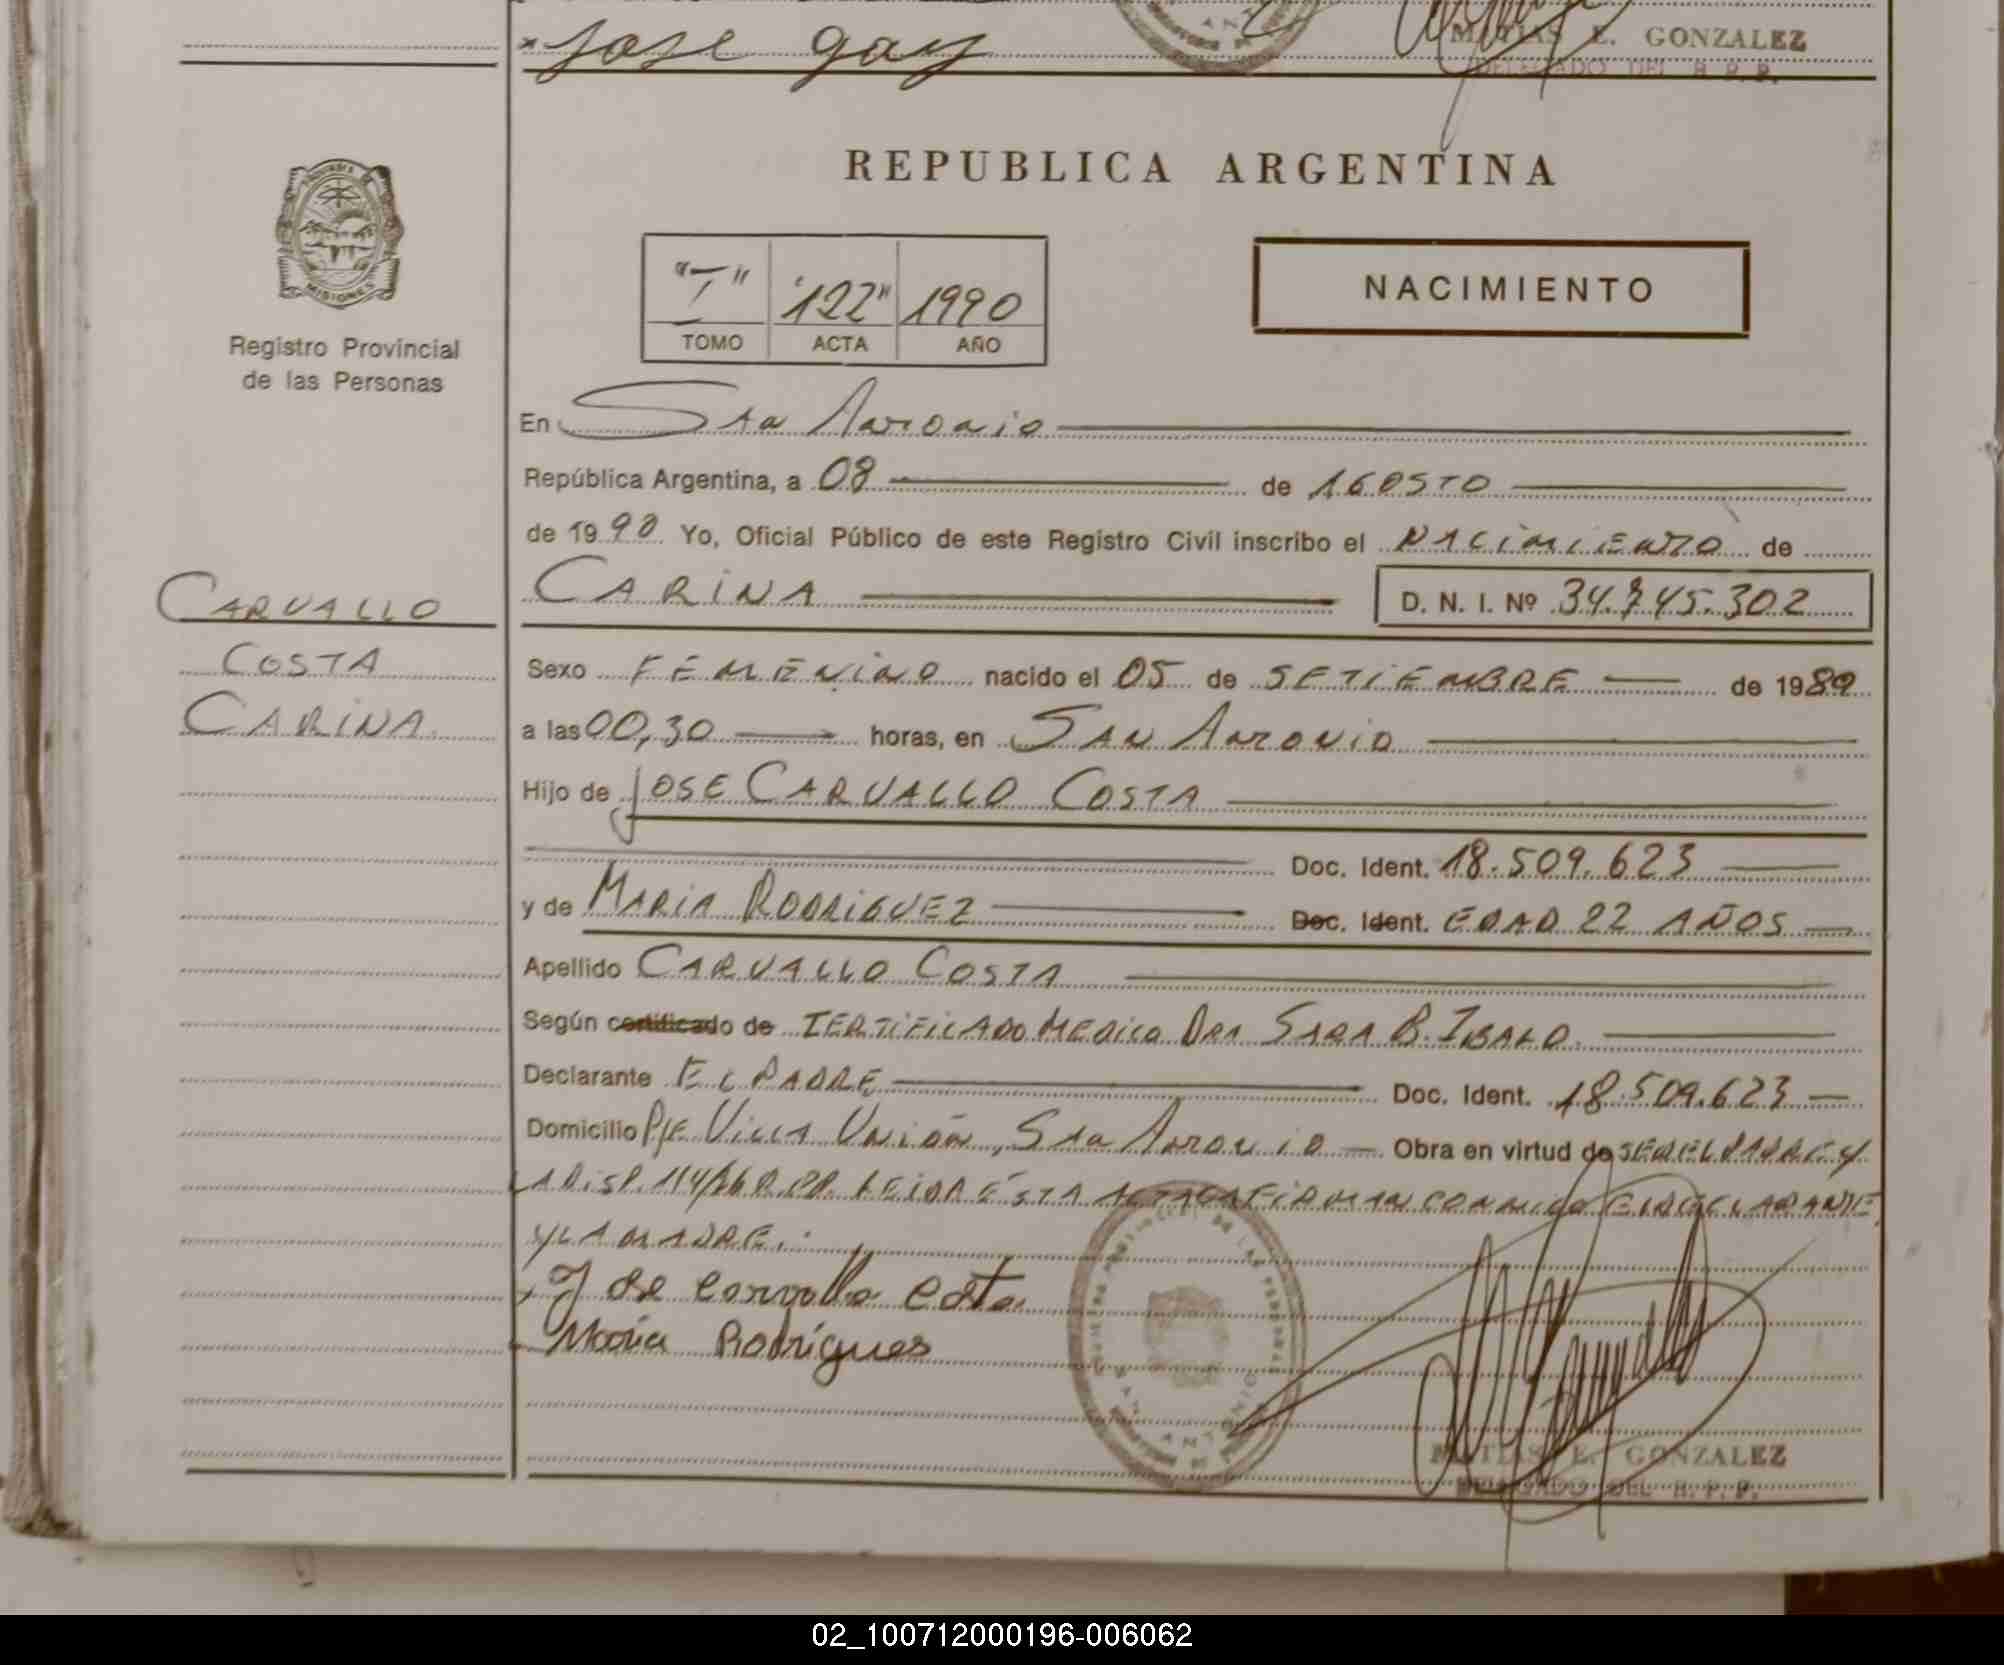 Jose gay
MATIAS E. GONZALEZ
DELEGADO DEL R. P. P.
REPUBLICA ARGENTINA
PROVINCIA DE
MISIONES
Registro Provincial
de las Personas
"I" "122" 1990
TOMO ACTA AÑO
NACIMIENTO
En San Antonio
República Argentina, a 08 de AGOSTO
de 1990 Yo, Oficial Público de este Registro Civil inscribo el NACIMIENTO de
CARINA D. N. I. Nº 34.745.302
CARVALLO
COSTA
CARINA.
Sexo FEMENINO nacido el 05 de SETIEMBRE de 1989
a las 00,30 horas, en SAN ANTONIO
Hijo de JOSE CARVALLO COSTA
Doc. Ident. 18.509.623
y de MARIA RODRIGUEZ Doc. Ident. EDAD 22 AÑOS
Apellido CARVALLO COSTA
Según certificado de CERTIFICADO MEDICO DRA SARA B.
Declarante EL PADRE Doc. Ident. 18.509.623
Domicilio Pje Villa Unión, San Antonio Obra en virtud de SER EL PADRE Y
LA DISP. 114/86 R.P.P. LEIDA ÉSTA ACTA LA FIRMAN CONMIGO EL DECLARANTE
Y LA MADRE.
Jose Carvallo Costa
Maria Rodrígues
SAN ANTONIO
MATIAS E. GONZALEZ
DELEGADO DEL R. P. P.
02_100712000196-006062